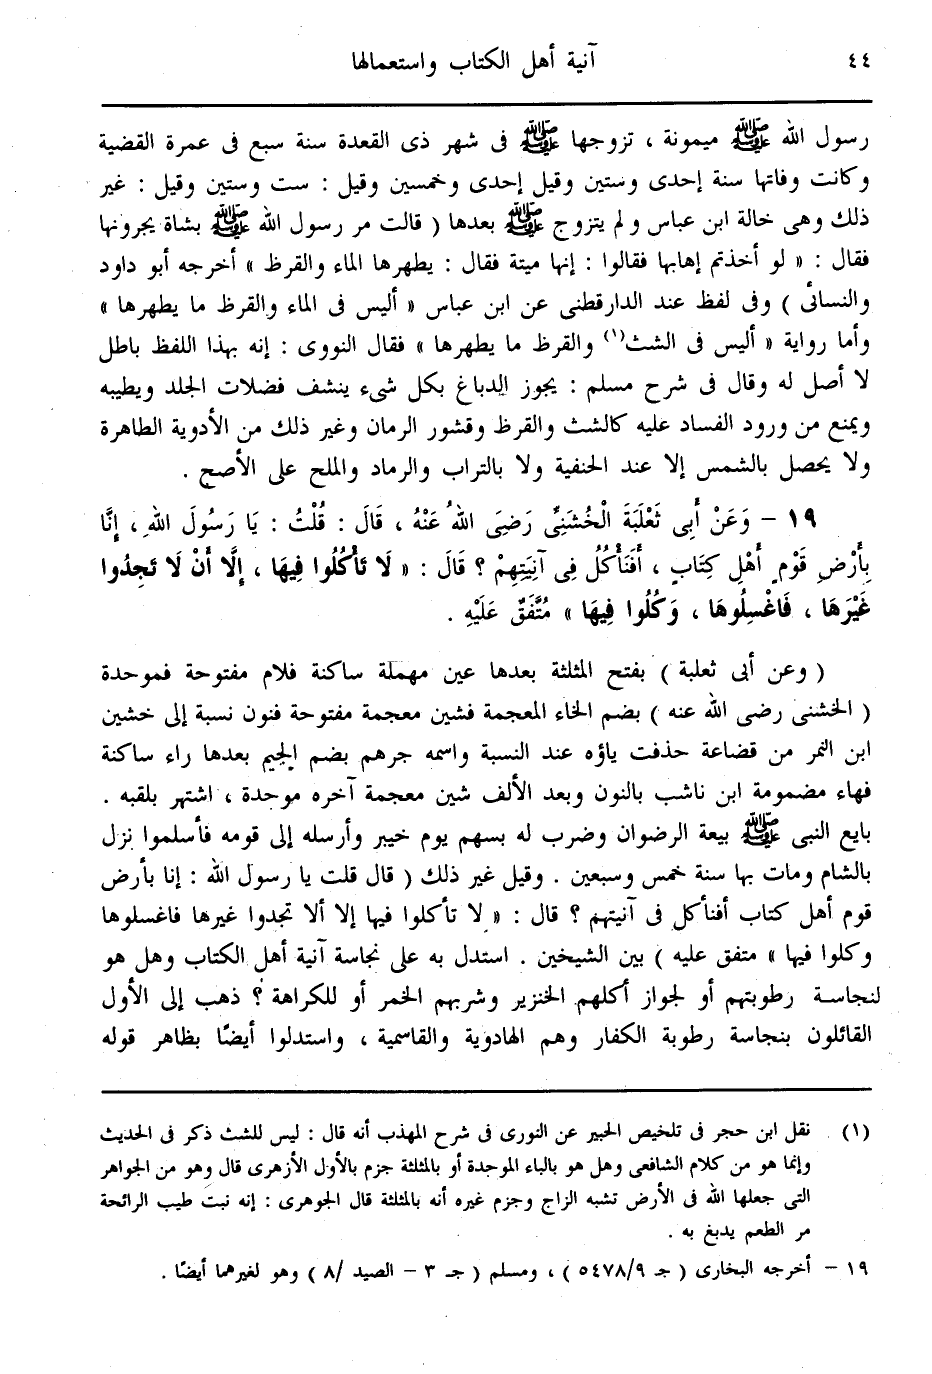 ٤٤
آنية أهل الكتاب واستعمالها
رسول الله ﷺ ميمونة ، تزوجها ﷺ فى شهر ذى القعدة سنة سبع فى عمرة القضية
وكانت وفاتها سنة إحدى وستين وقيل إحدى وخمسين وقيل : ست وستين وقيل : غير
ذلك وهى خالة ابن عباس ولم يتزوج ﷺ بعدها ( قالت مر رسول الله ﷺ بشاة يجرونها
فقال : « لو أخذتم إهابها فقالوا : إنها ميتة فقال : يطهرها الماء والقرظ » أخرجه أبو داود
والنسائى ) وفى لفظ عند الدارقطنى عن ابن عباس « أليس فى الماء والقرظ ما يطهرها »
وأما رواية « أليس فى الشث(١) والقرظ ما يطهرها » فقال النووى : إنه بهذا اللفظ باطل
لا أصل له وقال فى شرح مسلم : يجوز الدباغ بكل شىء ينشف فضلات الجلد ويطيبه
ويمنع من ورود الفساد عليه كالشث والقرظ وقشور الرمان وغير ذلك من الأدوية الطاهرة
ولا يحصل بالشمس إلا عند الحنفية ولا بالتراب والرماد والملح على الأصح .
١٩ – وَعَنْ أَبِى ثَعْلَبَةَ الْخُشَنِىِّ رَضِىَ اللهُ عَنْهُ ، قَالَ : قُلْتُ : يَا رَسُولَ اللهِ ، إِنَّا
بِأَرْضِ قَوْمٍ أَهْلِ كِتَابٍ ، أَفَنَأْكُلُ فِى آنِيَتِهِمْ ؟ قَالَ : « لَا تَأْكُلُوا فِيهَا ، إِلَّا أَنْ لَا تَجِدُوا
غَيْرَهَا ، فَاغْسِلُوهَا ، وَكُلُوا فِيهَا » مُتَّفَقٌ عَلَيْهِ .
( وعن أبى ثعلبة ) بفتح المثلثة بعدها عين مهملة ساكنة فلام مفتوحة فموحدة
( الخشنى رضى الله عنه ) بضم الخاء المعجمة فشين معجمة مفتوحة فنون نسبة إلى خشين
ابن النمر من قضاعة حذفت ياؤه عند النسبة واسمه جرهم بضم الجيم بعدها راء ساكنة
فهاء مضمومة ابن ناشب بالنون وبعد الألف شين معجمة آخره موحدة ، اشتهر بلقبه .
بايع النبى ﷺ بيعة الرضوان وضرب له بسهم يوم خيبر وأرسله إلى قومه فأسلموا نزل
بالشام ومات بها سنة خمس وسبعين . وقيل غير ذلك ( قال قلت يا رسول الله : إنا بأرض
قوم أهل كتاب أفنأكل فى آنيتهم ؟ قال : « لا تأكلوا فيها إلا ألا تجدوا غيرها فاغسلوها
وكلوا فيها » متفق عليه ) بين الشيخين . استدل به على نجاسة آنية أهل الكتاب وهل هو
لنجاسة رطوبتهم أو لجواز أكلهم الخنزير وشربهم الخمر أو للكراهة ؟ ذهب إلى الأول
القائلون بنجاسة رطوبة الكفار وهم الهادوية والقاسمية ، واستدلوا أيضًا بظاهر قوله
(١) نقل ابن حجر فى تلخيص الحبير عن النورى فى شرح المهذب أنه قال : ليس للشث ذكر فى الحديث
وإنما هو من كلام الشافعى وهل هو بالباء الموحدة أو بالمثلثة جزم بالأول الأزهرى قال وهو من الجواهر
التى جعلها الله فى الأرض تشبه الزاج وجزم غيره أنه بالمثلثة قال الجوهرى : إنه نبت طيب الرائحة
مر الطعم يدبغ به .
١٩ – أخرجه البخارى ( جـ ٥٤٧٨/٩ ) ، ومسلم ( جـ ٣ – الصيد /٨ ) وهو لغيرهما أيضًا .